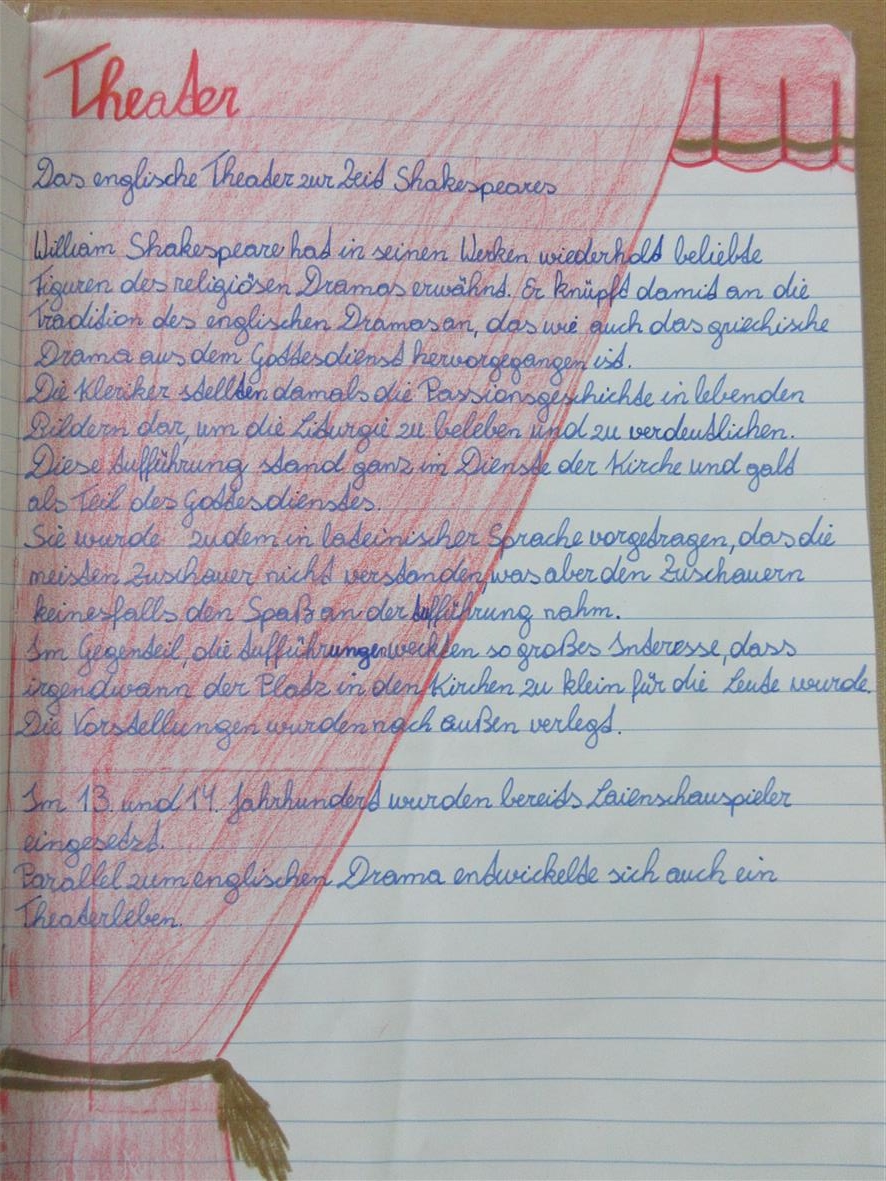 Theater
Das englische Theater zur Zeit Shakespeares
William Shakespeare hat in seinen Werken wiederholt beliebte
Figuren des religiösen Dramas erwähnt. Er knüpft damit an die
Tradition des englischen Dramas an, das wie auch das griechische
Drama aus dem Gottesdienst hervorgegangen ist.
Die Kleriker stellten damals die Passionsgeschichte in lebenden
Bildern dar, um die Liturgie zu beleben und zu verdeutlichen.
Diese Aufführung stand ganz im Dienste der Kirche und galt
als Teil des Gottesdienstes.
Sie wurde zudem in lateinischer Sprache vorgetragen, das die
meisten Zuschauer nicht verstanden, was aber den Zuschauern
keinesfalls den Spaß an der Aufführung nahm.
Im Gegenteil, die Aufführungen weckten so großes Interesse, dass
irgendwann der Platz in den Kirchen zu klein für die Leute wurde.
Die Vorstellungen wurden nach außen verlegt.
Im 13. und 14. Jahrhundert wurden bereits Laienschauspieler
eingesetzt.
Parallel zum englischen Drama entwickelte sich auch ein
Theaterleben.